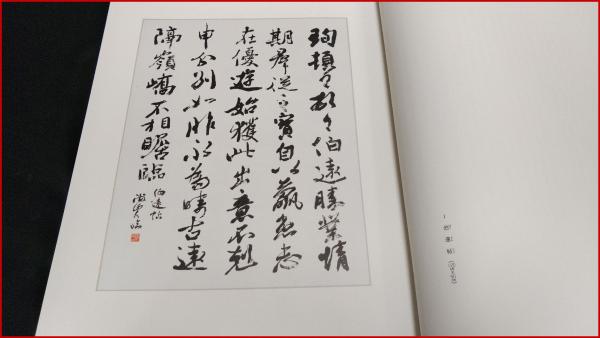 珣頓々首々伯遠勝業情
期羣從之寶自以羸患志
在優遊始獲此出意不剋
申分別如昨永為疇古遠
隔嶺嶠不相瞻臨
伯遠帖
1 伯遠帖